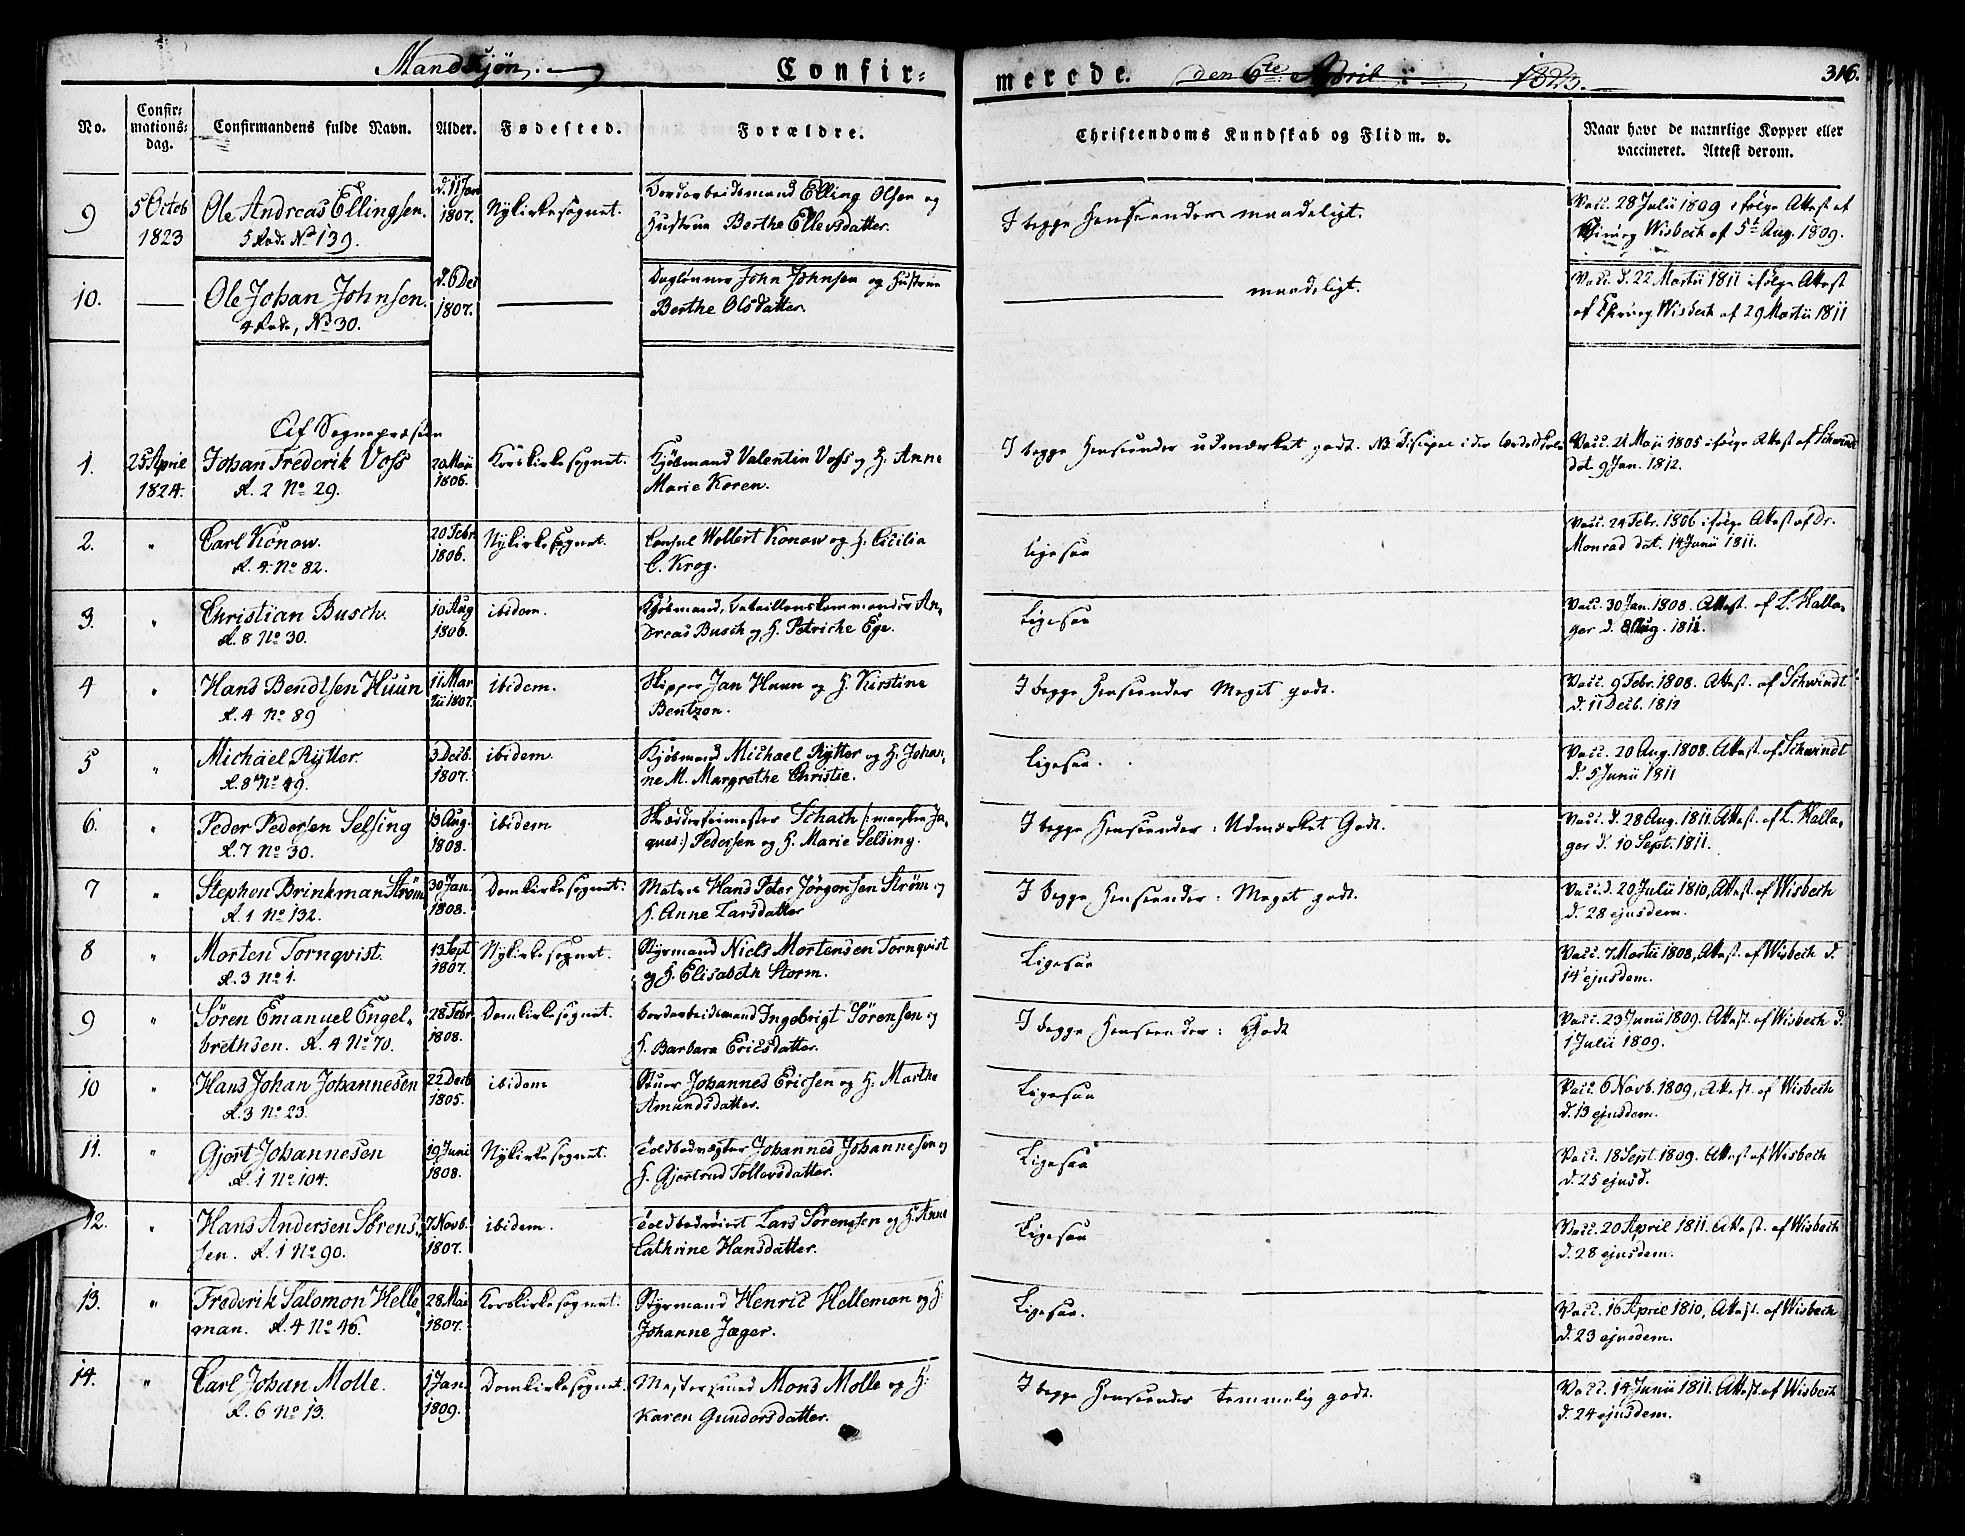 Mandkjön. Confirmerede. den 6te April 1823. 316.
No. Confirmations-dag. Confirmandens fulde Navn. Alder. Fødested. Forældre. Christendoms Kundskab og Flid m. v. Naar havt de naturlige Kopper eller vaccineret. Attest derom.
9 5 Octob Ole Andreas Ellingsen. d. 11 Jan Nykirkesognet. Bordarbeidsmand Elling Olsen og I begge Henseender maadeligt. Vacc. 28 Julii 1809 ifølge Attest af
1823 5 Rode No 139. 1807. Hustrue Berthe Ellevsdatter. Chirurg Wisbech af 5te Aug. 1809.
10. — Ole Johan Johnsen. d. 6 Dec — Dagleier John Johnsen og Hustrue — maadeligt. Vacc. d. 22 Martii 1811 ifølge Attest
4 Rode, No 30. 1807. Berthe Olsdatter. af Chirurg Wisbech af 29 Martii 1811
Af Sognepræsten
1. 25 April Johan Frederik Voss 20 Maji Korskirkesognet. Kjøbmand Valentin Voss og H. Anne I begge Henseender udmærket godt. NB Discipel i den lærde Skole Vacc. 21 Maji 1805 ifølge Attest af Schwindt
1824. R. 2 No 29. 1806. Marie Koren. dat. 9 Jan. 1812.
2. " Carl Konow. 20 Febr. Nykirkesognet. Consul Wollert Konow og H. Cicilia Ligesaa Vacc. 24 Febr. 1806 ifølge Attest af Dr.
R. 4 No 82. 1806. C. Krog. Monrad dat. 14 Junii 1811.
3. " Christian Busch. 10 Aug ibidem. Kjøbmand, Bataillonskommandør An- Ligesaa Vacc. 30 Jan. 1808. Attest. af L. Halla-
R. 8 No 30. 1806. dreas Busch og H. Petriche Ege. ger d. 8 Aug. 1811.
4 " Hans Bendtsen Huun 11 Mar ibidem. Skipper Jan Huun og H. Kirstine I begge Henseender Meget godt. Vacc. 9 Febr. 1808. Attest. af Schwindt
R. 4 No 89 tii 1807. Bentzon. d. 11 Decb. 1812
5 " Michael Rytter. 3 Decb. ibidem. Kjøbmand Michael Rytter og H. Johan- Ligesaa. Vacc. 20 Aug. 1808. Attest. af Schwindt
R. 8 No 49. 1807. ne M. Margrethe Christie. d. 5 Junii 1811
6. " Peder Pedersen Selsing 13 Aug. ibidem Skrædderfrimester Schach (: maaskee Ja- I begge Henseender: Udmærket Godt. Vacc. d. 28 Aug. 1811. Attest. af L. Halla-
R. 7 No 30. 1808. ques:) Pedersen og H. Marie Selsing. ger d. 10 Sept. 1811.
7 " Stephen Brinkman Strøm 30 Jan. Domkirkesognet. Matros Hans Peter Jørgensen Strøm og I begge Henseender: Meget godt. Vacc. d. 20 Julii 1810, Attest. af Wisbech
R. 1 No 132. 1808. H. Anne Larsdatter d. 28 ejusdem.
8 " Morten Tornqvist. 13 Sept Nykirkesognet. Styrmand Niels Mortensen Tornqvist Ligesaa Vacc. 7 Martii 1808, Attest. af Wisbech d.
R. 3 No 1. 1807. og H. Elisabeth Storm. 14 ejusdem.
9 " Søren Emanuel Engel- 28 Febr Domkirkesognet. Bordarbeidsmand Ingebrigt Sørensen og I begge Henseender: Godt Vacc. 23 Junii 1809. Attest. af Wisbech d.
brethsen. R. 4 No 70. 1808. H. Barbara Ericsdatter. 1 Julii 1809.
10 " Hans Johan Johannesen 22 Decb ibidem Stuer Johannes Ericsen og H. Marthe Ligesaa Vacc. 6 Novb. 1809, Attest. af Wisbech
R. 3 No 23. 1805. Amundsdatter. d. 13 ejusdem.
11. " Gjert Johannesen 19 Juni Nykirkesognet. Toldbodvægter Johannes Johannesen og Ligesaa Vacc. 18 Sept. 1809. Attest. af Wisbech
R. 1 No 104. 1808. H. Gjertrud Tollevsdatter. d. 25 ejusd.
12. " Hans Andersen Sørens- 7 Novb. ibidem. Toldbodroiert Lars Sørensen og H. Anne Ligesaa Vacc. 20 April 1811. Attest. af Wisbech
sen. R. 1 No 90. 1807. Cathrine Hansdatter. d. 28 ejusdem.
13. " Frederik Salomon Helle- 28 Mai Korskirkesognet. Styrmand Henric Helleman og H. Ligesaa. Vacc. 16 April 1810, Attest. af Wisbech
man. R. 4 No 46. 1807. Johanne Jæger. d. 23 ejusdem.
14. " Carl Johan Molle. 1 Jan. Domkirkesognet. Mestersmed Mons Molle og H: I begge Henseender temmelig godt. Vacc. 14 Junii 1811. Attest. af Wisbech
R. 6 No 13. 1809. Karen Gundersdatter. d. 24 ejusdem.